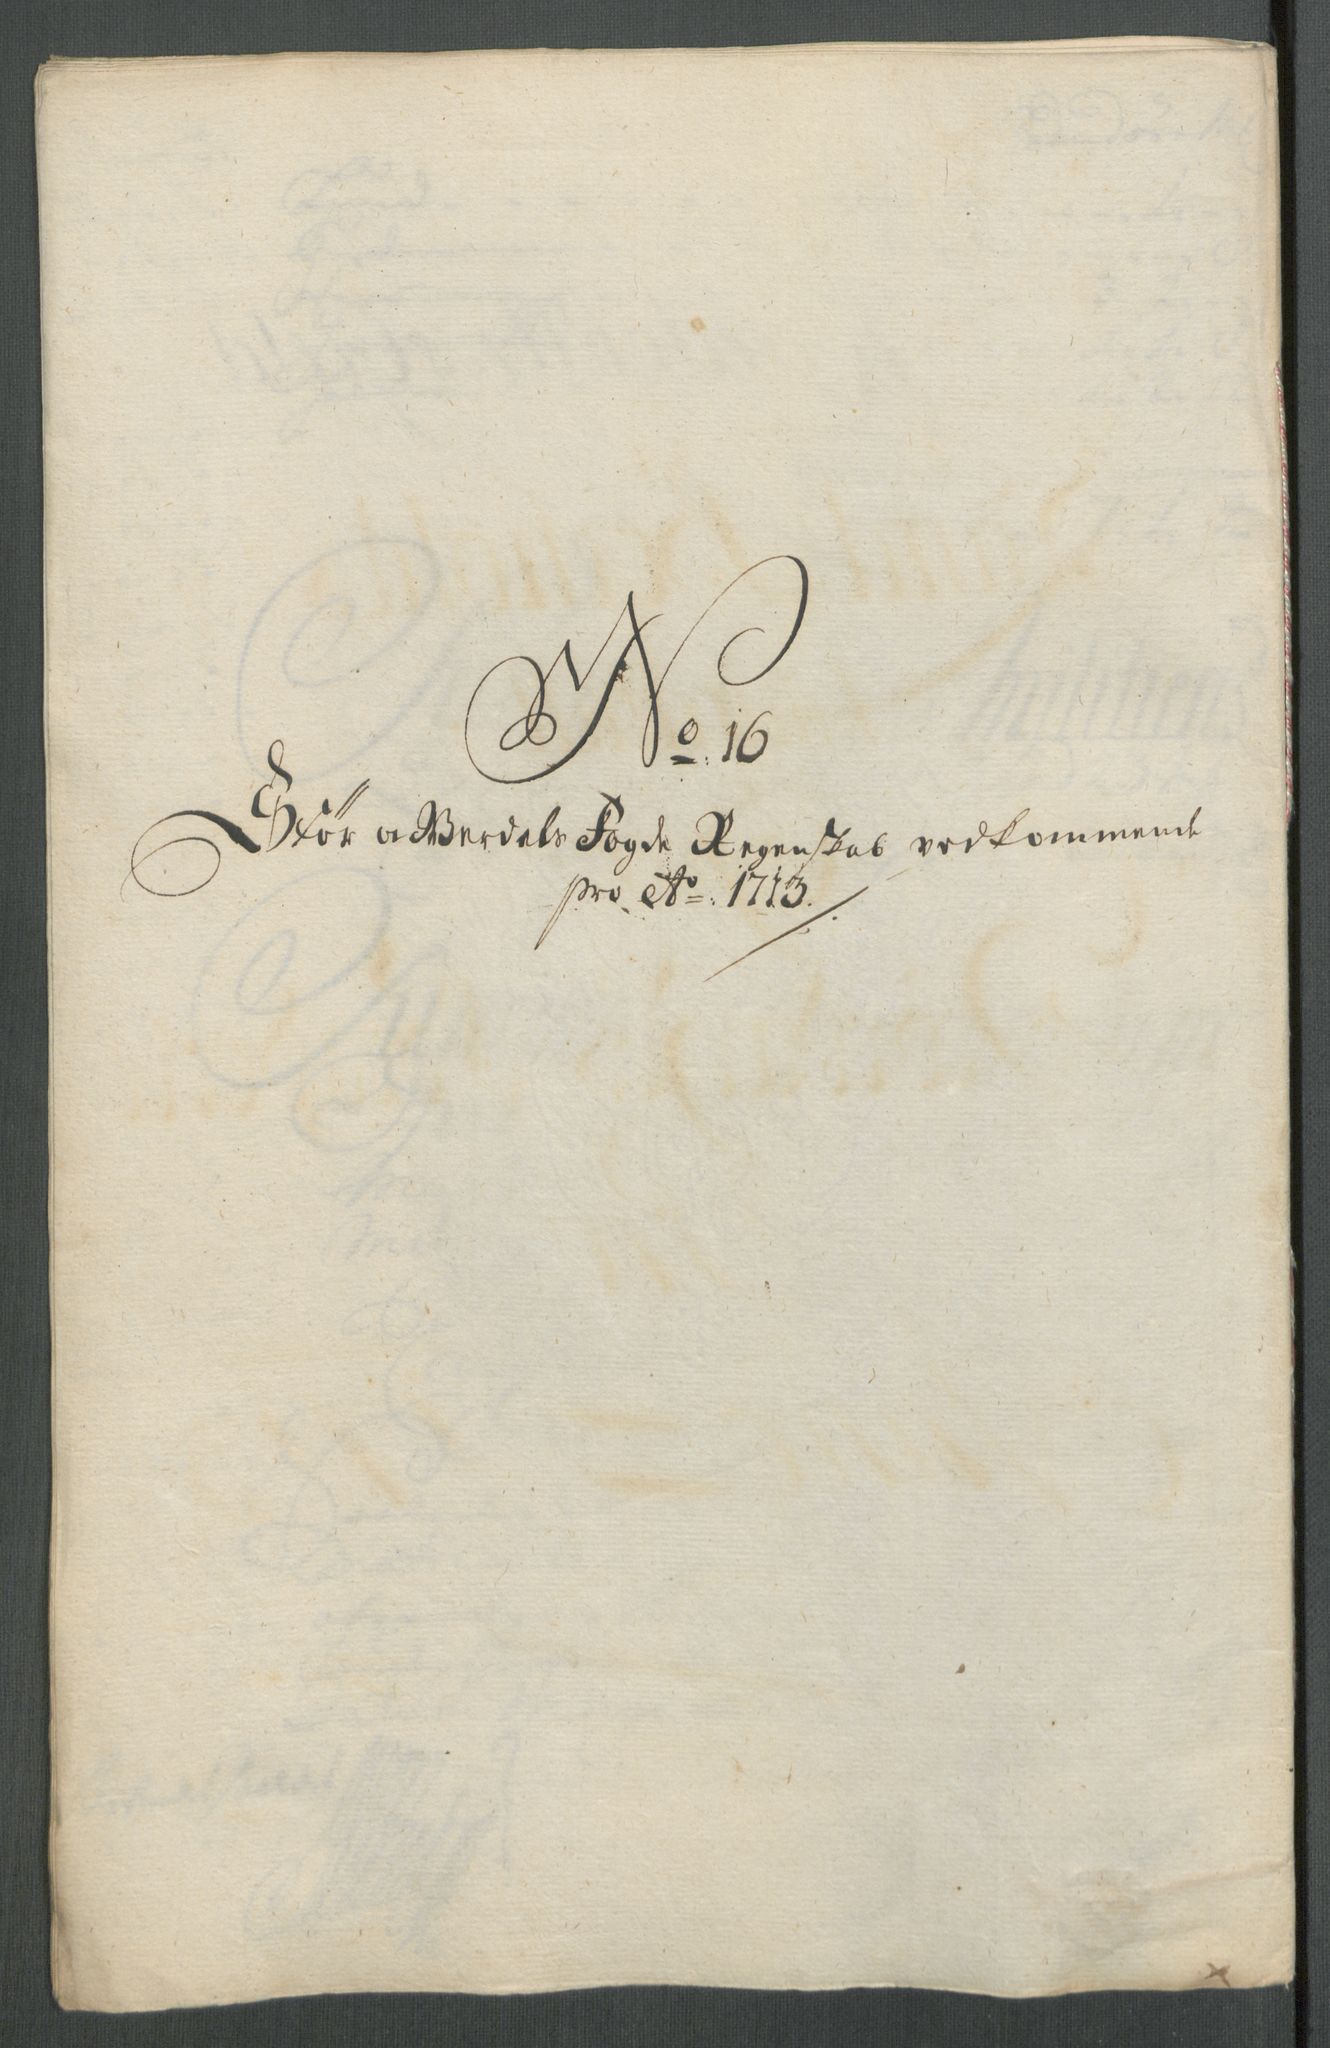 No. 16
Stør a Werdals Fogde Regenskab vedkommende
pro Ao: 1713.